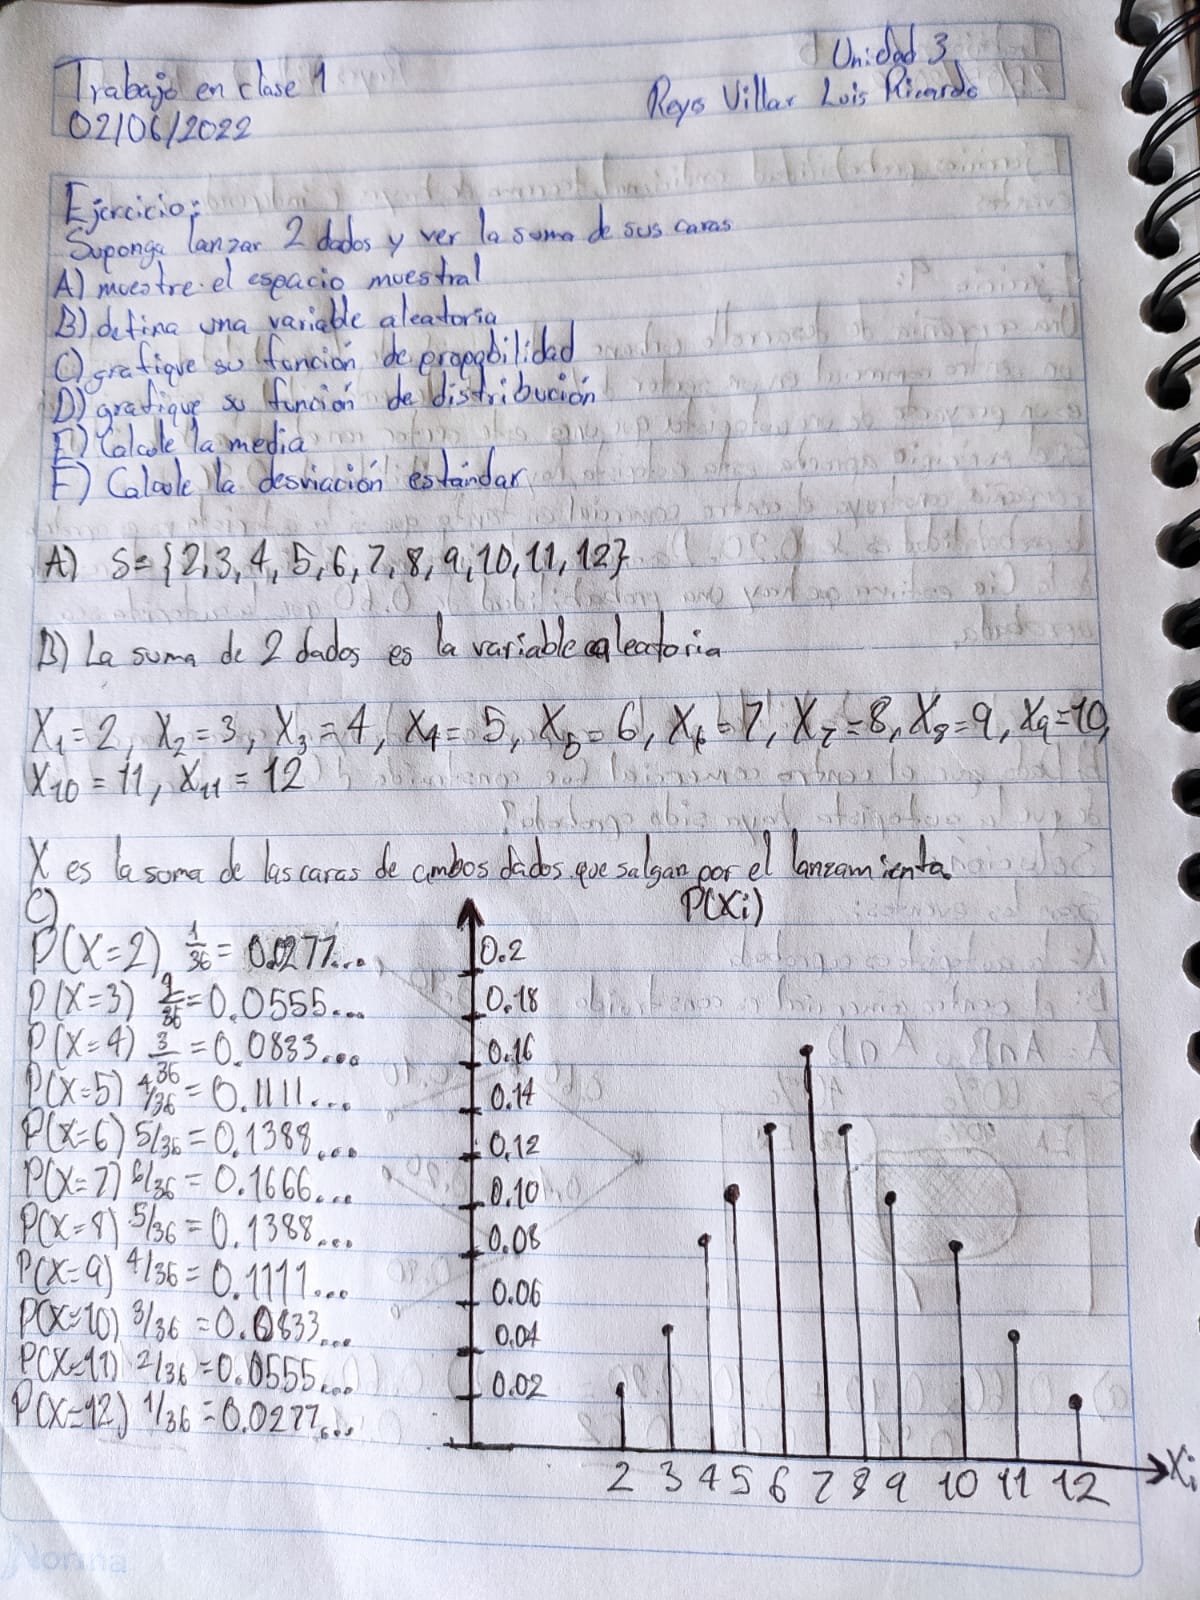 Unidad 3
Trabajo en clase 1
Reyes Villar Luis Ricardo
02/06/2022
Ejercicio:
Suponga lanzar 2 dados y ver la suma de sus caras
A) muestre el espacio muestral
B) defina una variable aleatoria
C) grafique su función de propabilidad
D) grafique su función de distribución
E) Calcule la media
F) Calcule la desviación estándar
A) S={2,3,4,5,6,7,8,9,10,11,12}
B) La suma de 2 dados es la variable aleatoria
X₁=2, X₂=3, X₃=4, X₄=5, X₅=6, X₆=7, X₇=8, X₈=9, X₉=10,
X₁₀=11, X₁₁=12
X es la suma de las caras de ambos dados que salgan por el lanzamiento.
C)
P(X=2) 1/36 = 0.0277...
P(X=3) 2/36 = 0.0555...
P(X=4) 3/36 = 0.0833...
P(X=5) 4/36 = 0.1111...
P(X=6) 5/36 = 0.1388...
P(X=7) 6/36 = 0.1666...
P(X=8) 5/36 = 0.1388...
P(X=9) 4/36 = 0.1111...
P(X=10) 3/36 = 0.0833...
P(X=11) 2/36 = 0.0555...
P(X=12) 1/36 = 0.0277...
P(Xi)
0.2
0.18
0.16
0.14
0.12
0.10
0.08
0.06
0.04
0.02
2 3 4 5 6 7 8 9 10 11 12 Xi
Norma